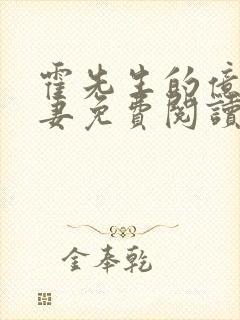 霍先生的億
妻免費閱讀
金奉乾